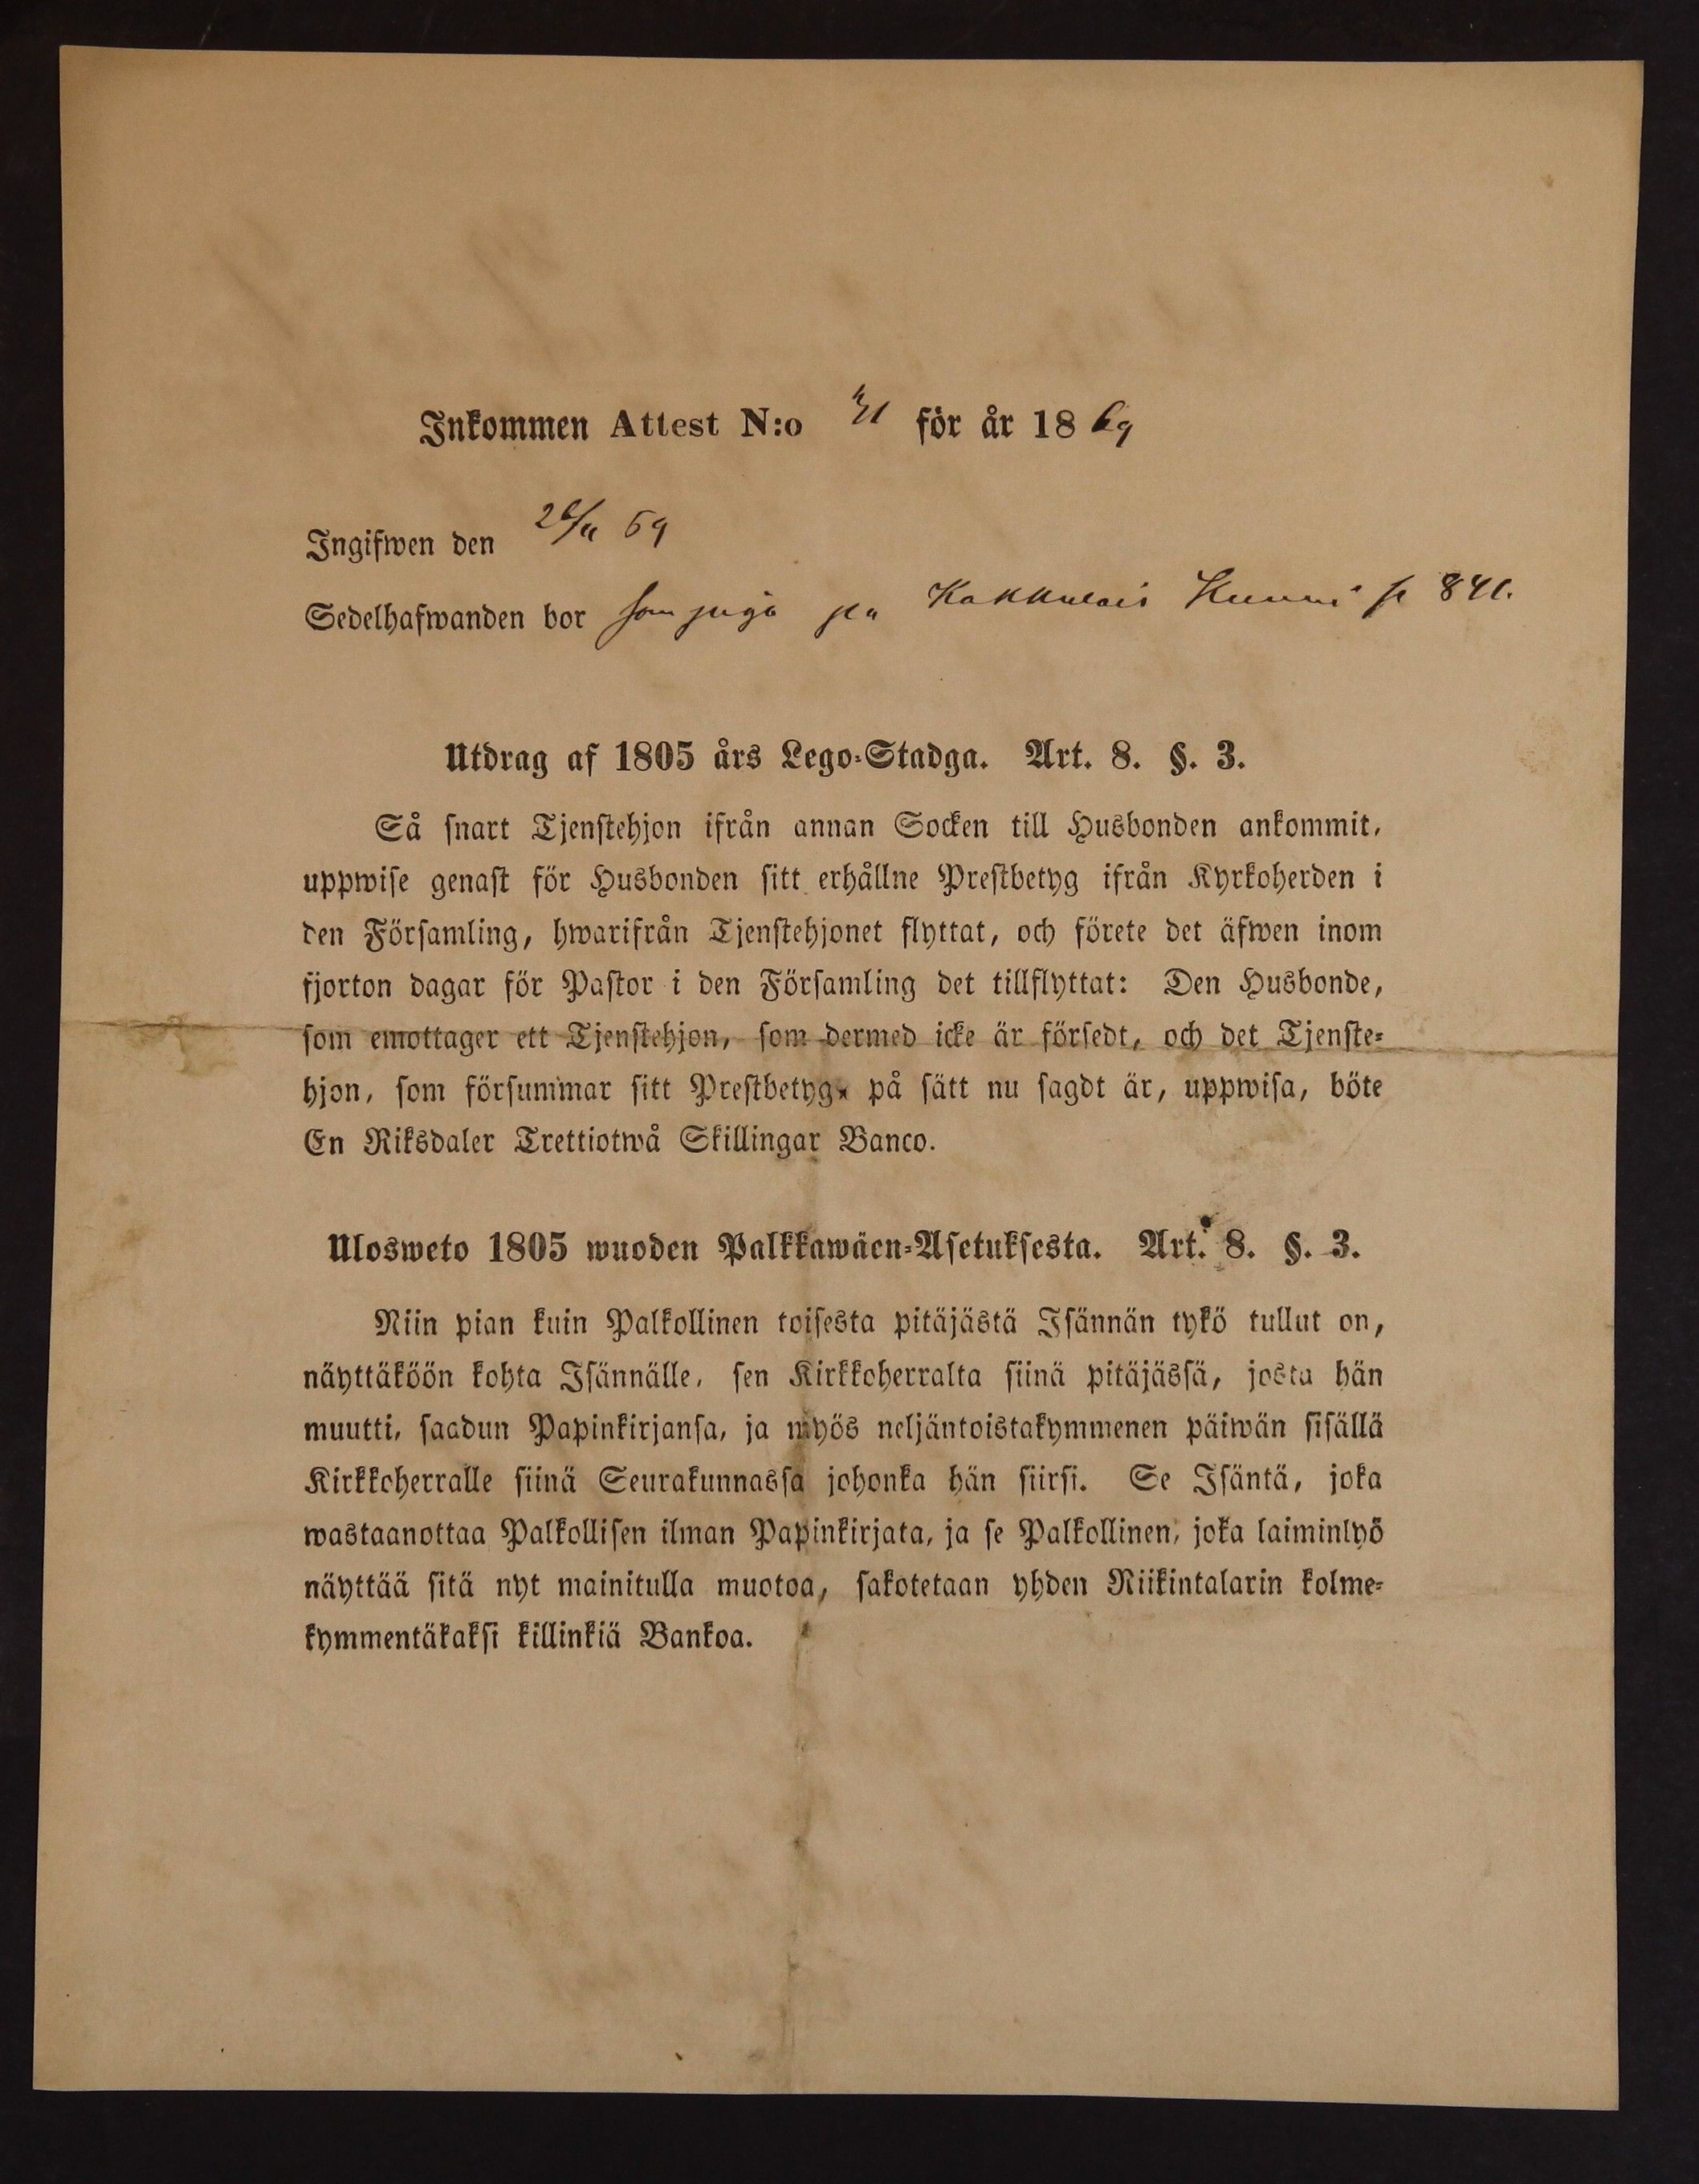 Inkommen Attest N:o 31 för år 1869
Ingifwen den 26/11 69
Sedelhafwanden bor som piga på Kakkulais p 841.
Utdrag af 1805 års Lego-Stadga. Art. 8. §. 3.
Så snart Tjenstehjon ifrån annan Socken till Husbonden ankommit,
uppwise genast för Husbonden sitt erhållne Prestbetyg ifrån Kyrkoherden i
den Församling, hwarifrån Tjenstehjonet flyttat, och förete det äfwen inom
fjorton dagar för Pastor i den Församling det tillflyttat: Den Husbonde,
som emottager ett Tjenstehjon, som dermed icke är försedt, och det Tjenste-
hjon, som försummar sitt Prestbetyg, på sätt nu sagdt är, uppwisa, böte
En Riksdaler Trettiotwå Skillingar Banco.
Ulosweto 1805 wuoden Palkkawäen-Asetuksesta. Art. 8. §. 3.
Niin pian kuin Palkollinen toisesta pitäjästä Isännän tykö tullut on,
näyttäköön kohta Isännälle, sen Kirkkoherralta siinä pitäjässä, josta hän
muutti, saadun Papinkirjansa, ja myös neljäntoistakymmenen päiwän sisällä
Kirkkoherralle siinä Seurakunnassa johonka hän siirsi. Se Isäntä, joka
wastaanottaa Palkollisen ilman Papinkirjata, ja se Palkollinen, joka laiminlyö
näyttää sitä nyt mainitulla muotoa, sakotetaan yhden Riikintalarin kolme-
kymmentäkaksi killinkiä Bankoa.